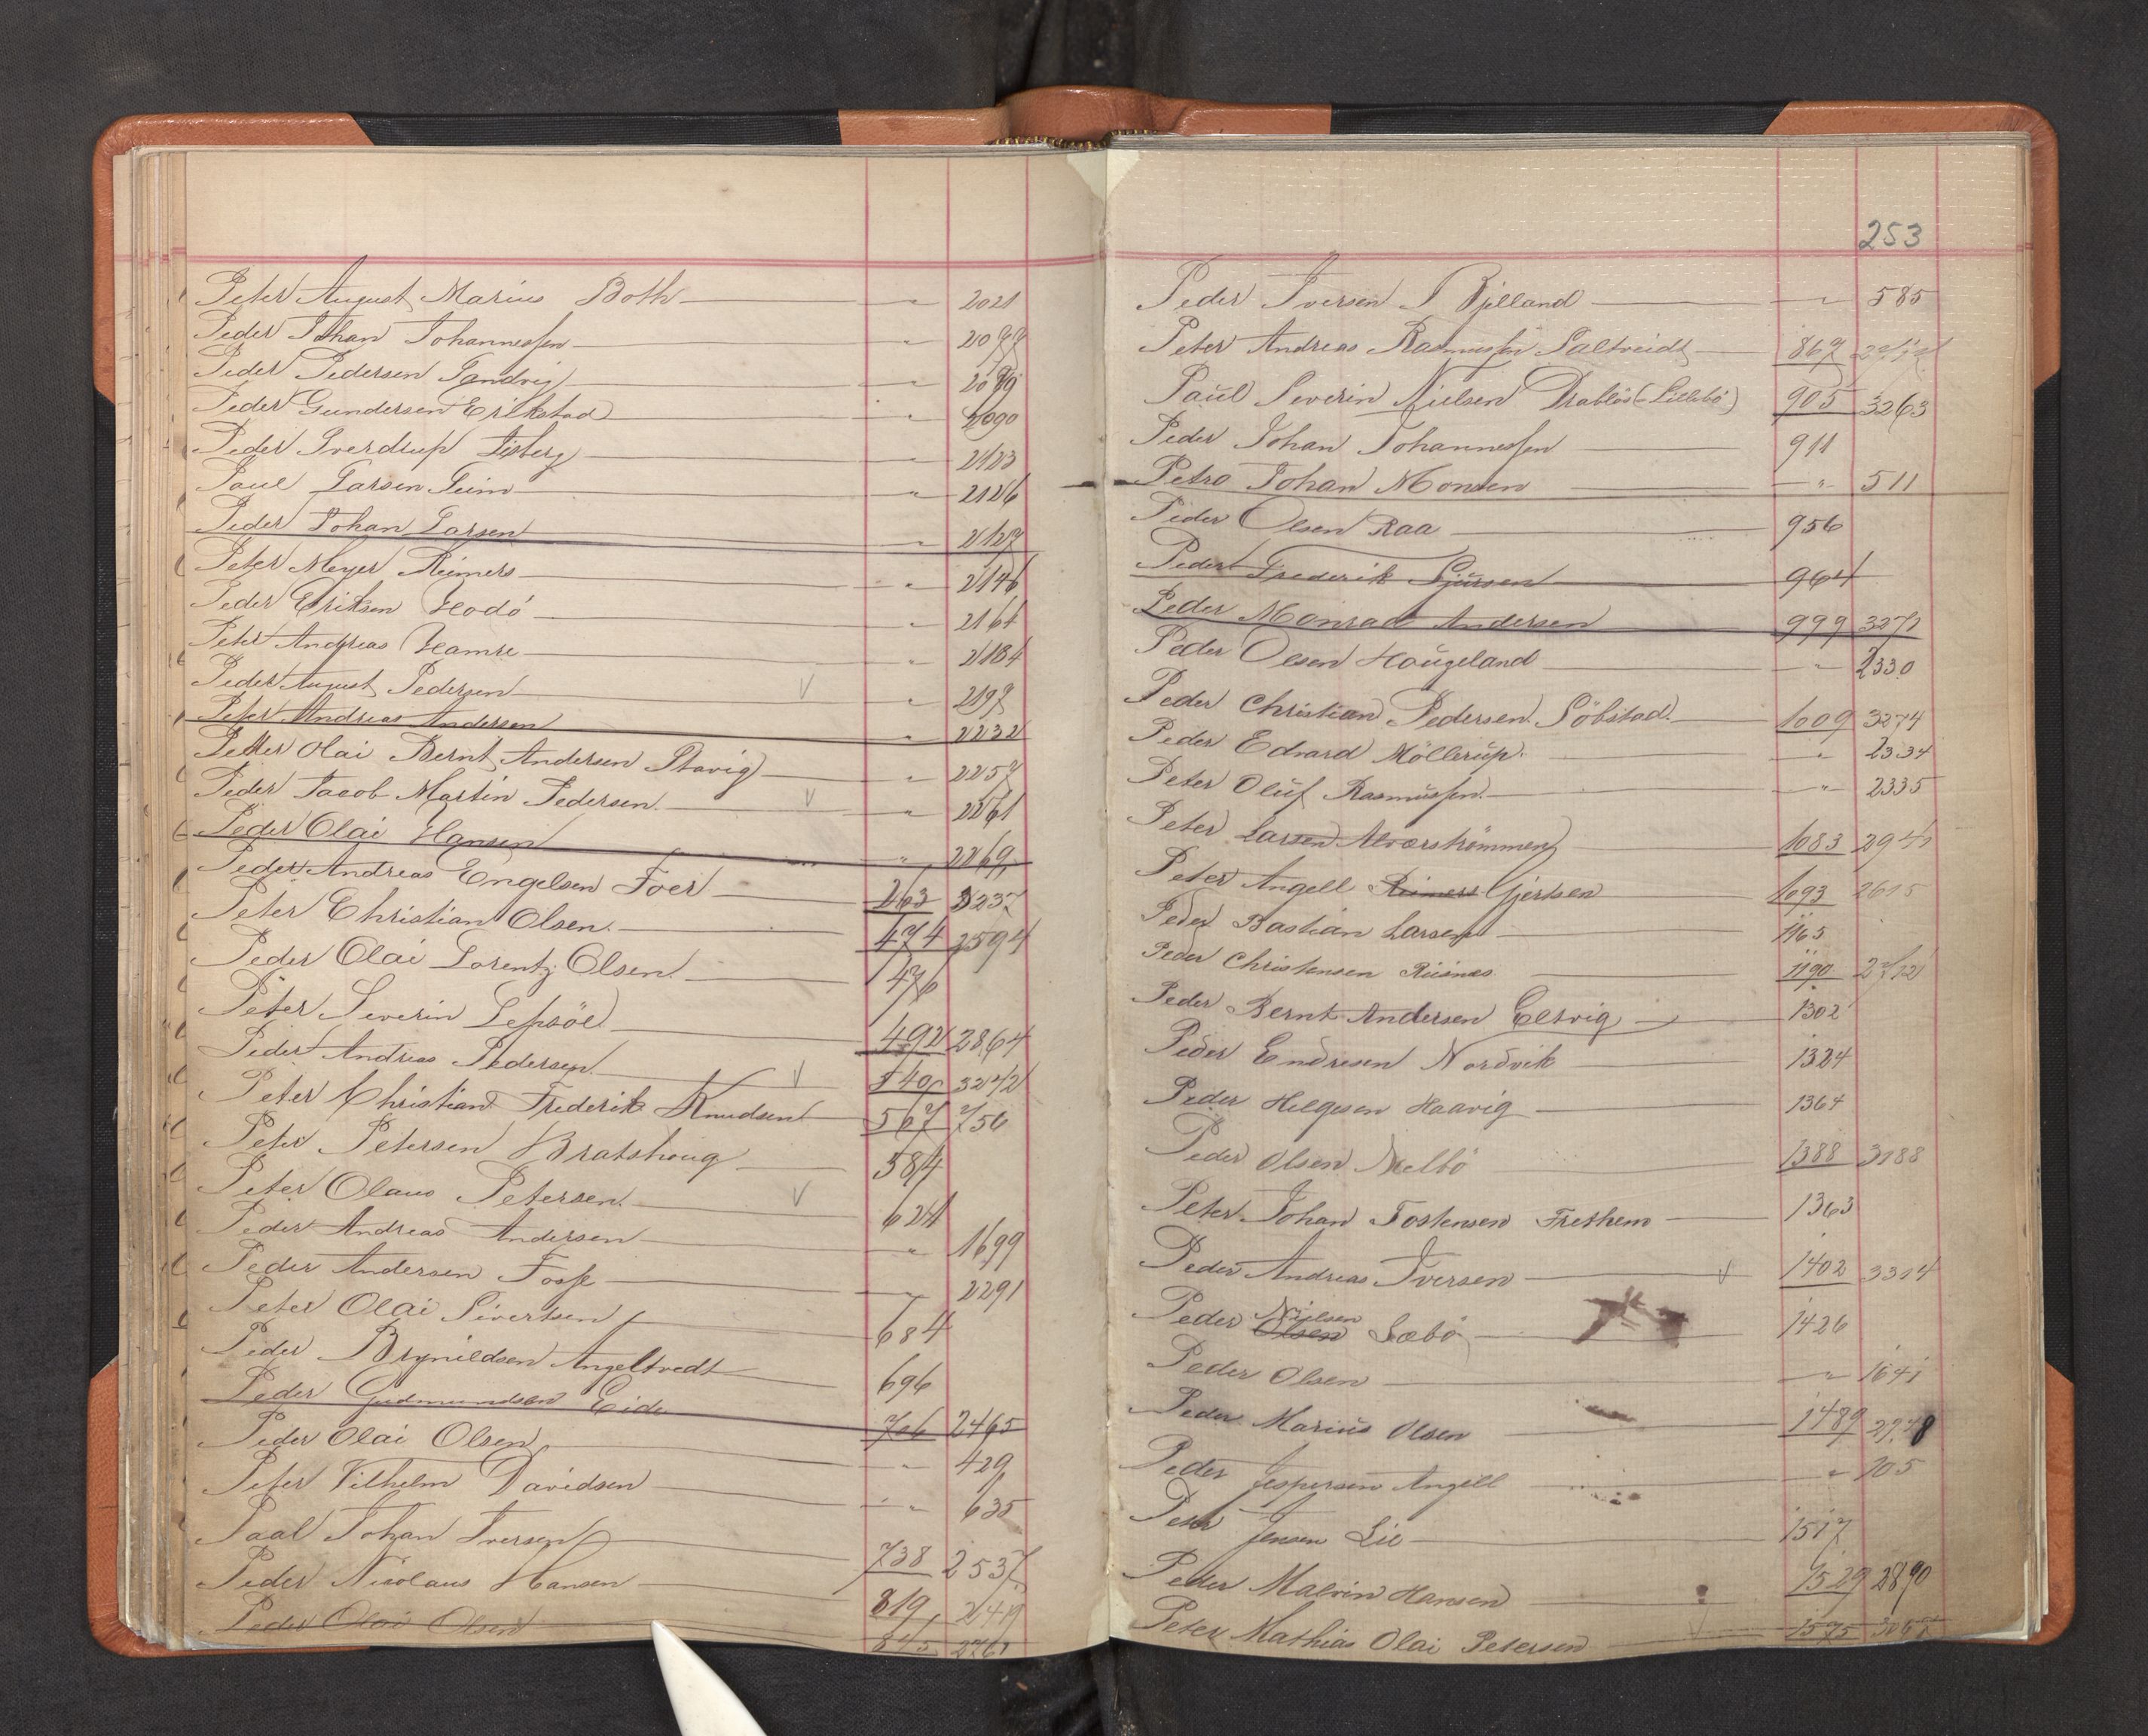 Peter August Marius Both — " — 2021
Peder Johan Johannessen — " —
Peder Pedersen Sandvig — " — 2089
Peder Gundersen Erikstad — " — 2090
Peder Sverdrup — " — 2123
Paul Larsen — " — 2126
Peder Johan Larsen — " — 2127
Peter Meyer Reimers — " — 2146
Peder Eriksen Hodö — " — 2164
Peter Andreas Hamre — " — 2184
Peder August Pedersen — V — " — 2197
Peter Andreas Andersen — " — 2232
Petter Olai Bernt Andersen Stavig — " — 2257
Peder Jacob Martin Pedersen — V — " — 2261
Peder Olai Hansen — " — 2269
Peder Andreas Engelsen Foer — 263 3237
Peter Christian Olsen — 474 2594
Peder Olai Lorentz Olsen — 476
Peter Severin Lepsöe — 492 2864
Peder Andreas Pedersen — V — 540 3242
Peter Christian Frederik Knudsen — 567 756
Peter Petersen Bratshoug — 584
Peter Olaus Petersen — V — 624
Peder Andreas Andersen — " — 1699
Peder Andersen Fosse — " — 2291
Peter Olai Sivertsen — 684
Peder Brynildsen Angeltvedt — 696
Peder Gudmundsen Eide — 706 2465
Peder Olai Olsen — " — 429
Peter Vilhelm Davidsen — " — 635
Paal Johan Iversen — 738 2537
Peder Nicolaus Hansen — 819
Peder Olai Olsen — 845 2761
253
Peder Iversen Bjelland — " — 585
Peter Andreas Rasmussen Saltveidt — 867
Paul Severin Nielsen Drablös (Lillebö) — 905 3263
Peder Johan Johannessen — 911
Petro Johan Monsen — " — 511
Peder Olsen Raa — 956
Peder Frederik Sjursen — 964
Peder Monrad Andersen — 999 3271
Peder Olsen Haugeland — " — 2330
Peder Christian Pedersen Söbstad — 1009 3274
Peder Edvard Möllerup — " — 2334
Peter Oluf Rasmussen — " — 2335
Peter Larsen Alværströmmen — 1083
Peter Angell Reimers Gjertsen — 1093 2615
Peder Bastian Larsen — 1165
Peder Christensen Risnes — 1190
Peder Bernt Andersen Elsvig — 1302
Peder Endresen Nordvik — 1324
Peder Helgesen Haavig — 1364
Peder Olsen Melbö — 1388 3188
Peter Johan Tostensen Frethem — 1363
Peder Andreas Iversen — V — 1402 3314
Nielsen
Peder Olsen Læbö — 1426
Peder Olsen — " — 1641
Peder Marius Olsen — 1489
Peder Jespersen Angell — " — 105
Peter Jensen Lie — 1517
Peder Malvin Hansen — 1529 2890
Peter Mathias Olai Petersen — V — 1575